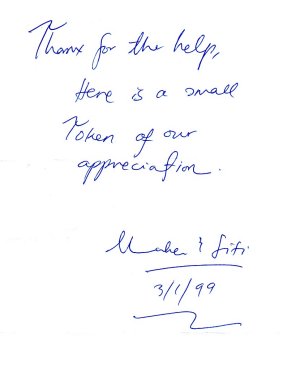 Thanx for the help,
Here is a small
Token of our
appreciation.
& Siti
3/1/99